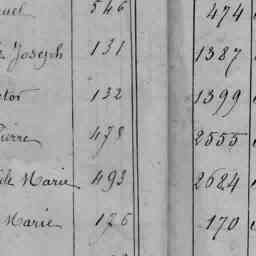 546 474
Joseph 131 1387
132 1399
Pierre 478 2555
de Marie 493 2684
Marie 126 170